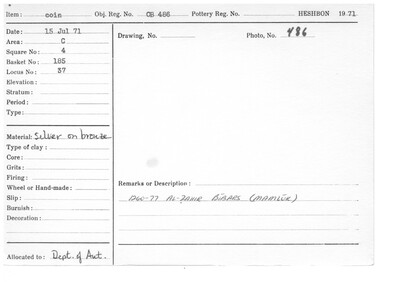 Item: coin Obj. Reg. No. OB 486 Pottery Reg. No. HESHBON 19 71
Date: 15 Jul 71
Drawing, No. Photo, No. 486
Area: C
Square No: 4
Basket No: 185
Locus No: 37
Elevation:
Stratum:
Period:
Type:
Material: Silver on bronze
Type of clay:
Core:
Grits:
Firing:
Wheel or Hand-made:
Remarks or Description:
Slip:
1260-77 AL-ZAHIR BIBARS (MAMLUK)
Burnish:
Decoration:
Allocated to: Dept. of Ant.